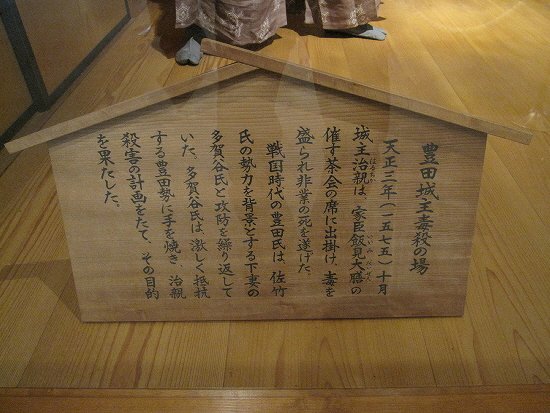 豊田城主毒殺の場
天正三年(一五七五)十月
城主治親は、家臣飯見大膳の
催す茶会の席に出掛け、毒を
盛られ非業の死を遂げた。
戦国時代の豊田氏は、佐竹
氏の勢力を背景とする下妻の
多賀谷氏と攻防を繰り返して
いた。多賀谷氏は、激しく抵抗
する豊田勢に手を焼き、治親
殺害の計画をたて、その目的
を果たした。